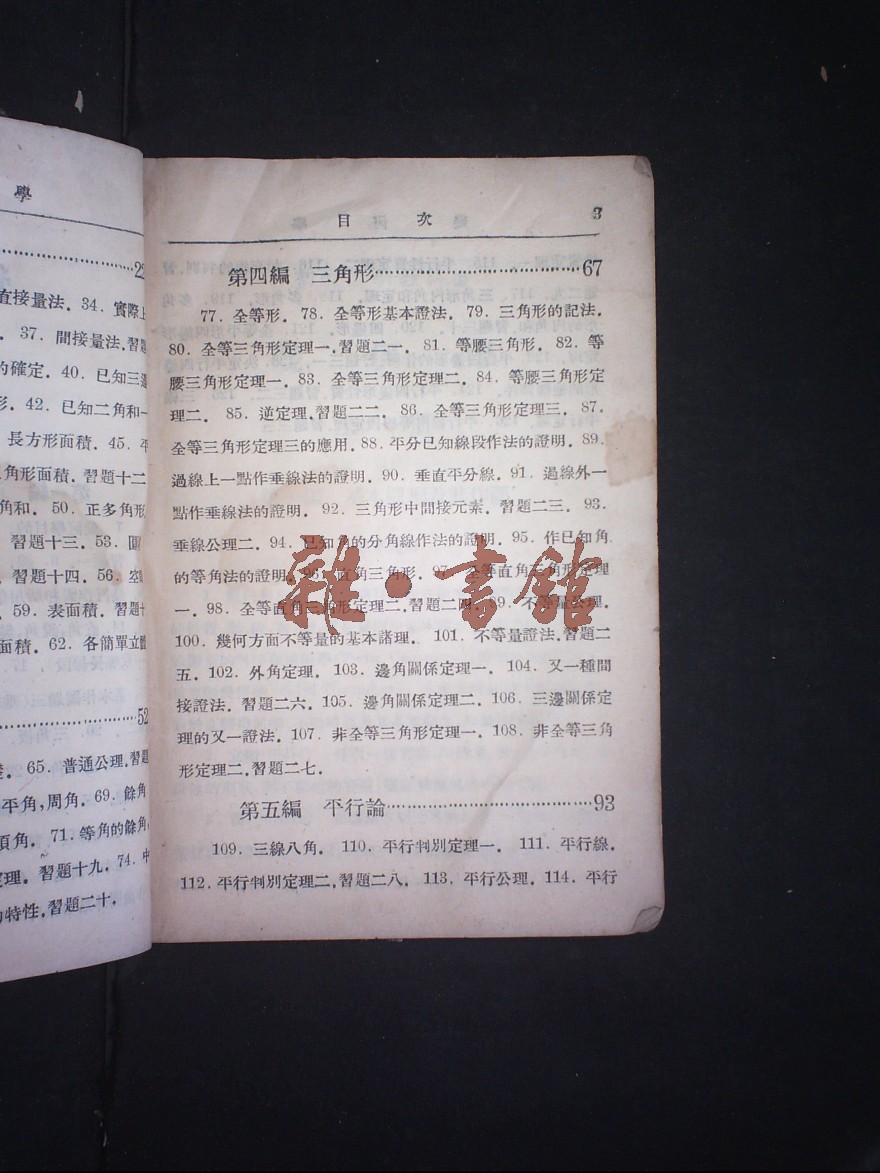 學
22
直接量法．34．實際上
．37．間接量法，習題
的確定．40．已知三邊
形．42．已知二角和一
長方形面積．45．平
角形面積．習題十二
角和．50．正多角形
習題十三．53．圓
習題十四．56．
．59．表面積．習題十
面積．62．各簡單立體
52
．65．普通公理，習題
平角，周角．69．餘角
頂角．71．等角的餘角
定理．習題十九．74．中
的特性，習題二十．
目 次 3
第四編 三角形……………………………67
77．全等形．78．全等形基本證法．79．三角形的記法．
80．全等三角形定理一，習題二一．81．等腰三角形．82．等
腰三角形定理一．83．全等三角形定理二．84．等腰三角形定
理二．85．逆定理，習題二二．86．全等三角形定理三．87．
全等三角形定理三的應用．88．平分已知線段作法的證明．89．
過線上一點作垂線法的證明．90．垂直平分線．91．過線外一
點作垂線法的證明．92．三角形中間接元素．習題二三．93．
垂線公理二．94．已知角的分角線作法的證明．95．作已知角
的等角法的證明．96．直角三角形．97．全等直角三角形定理
一．98．全等直角三角形定理二，習題二四．99．不等量公理．
100．幾何方面不等量的基本諸理．101．不等量證法，習題二
五．102．外角定理．103．邊角關係定理一．104．又一種間
接證法．習題二六．105．邊角關係定理二．106．三邊關係定
理的又一證法．107．非全等三角形定理一．108．非全等三角
形定理二，習題二七．
第五編 平行論……………………………93
109．三線八角．110．平行判別定理一．111．平行線．
112．平行判別定理二，習題二八．113．平行公理．114．平行
雜·書館